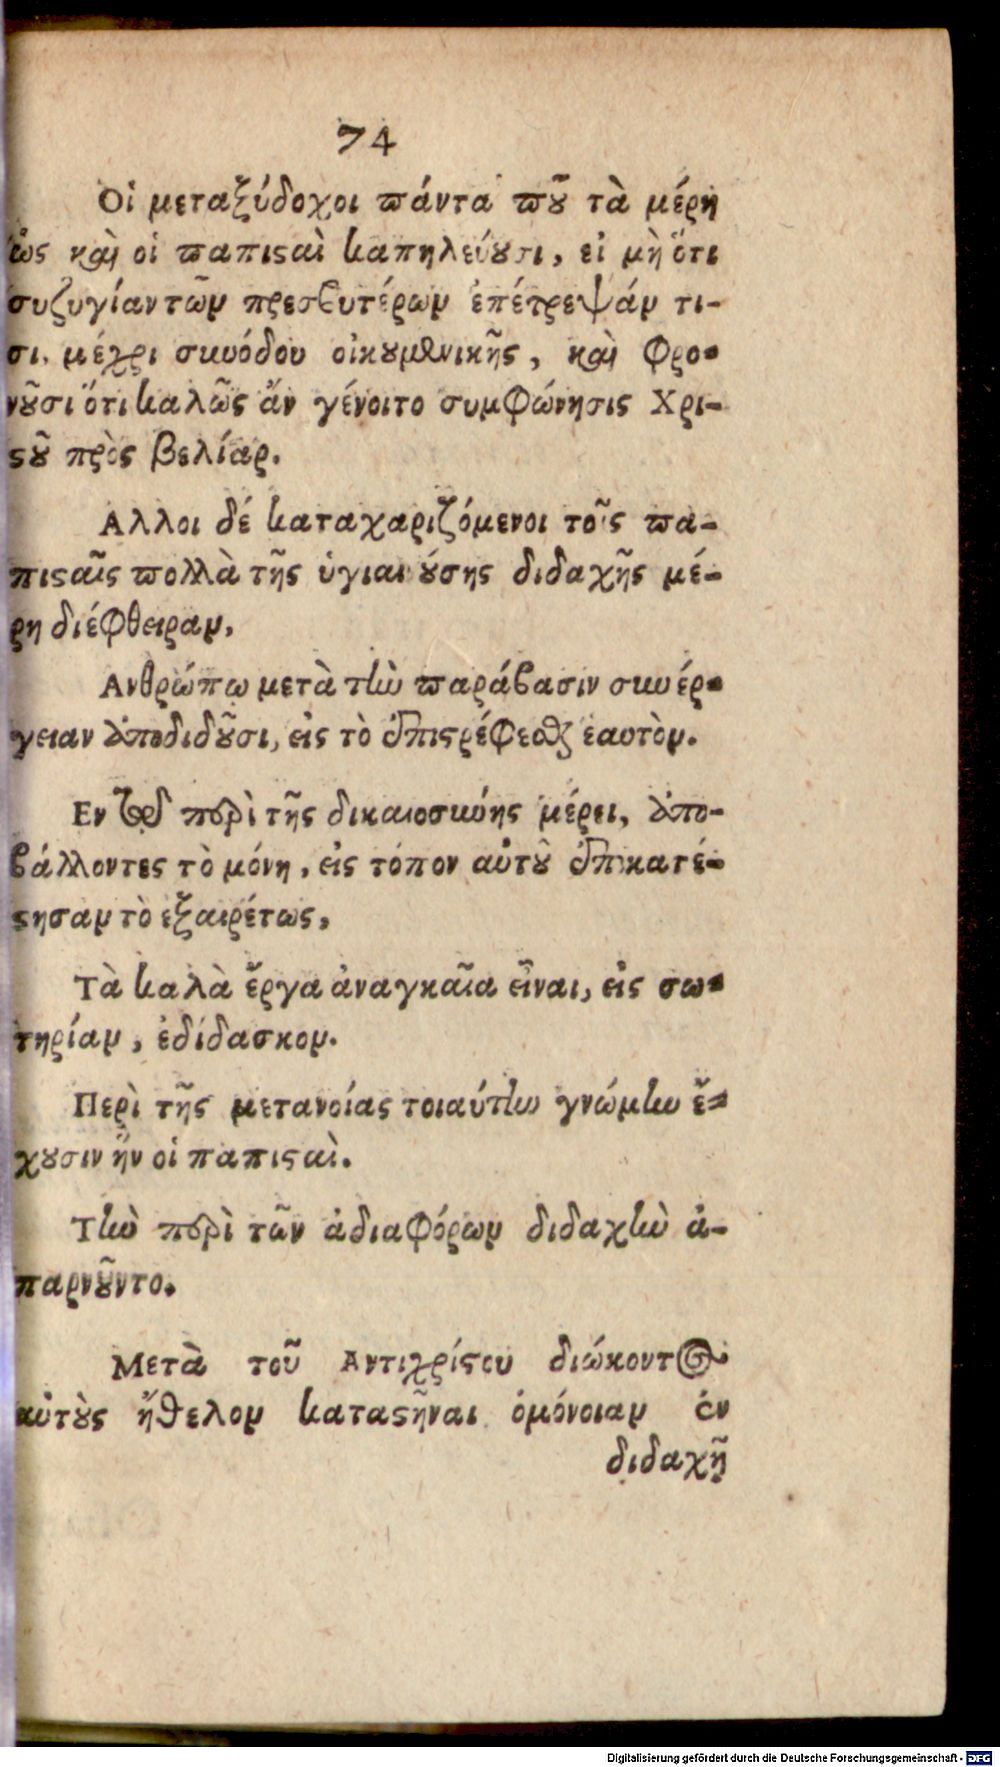 74
Οἱ μεταξύδοχοι πάντα πȣ̃ τὰ μέρη
ὡς καὶ οἱ παπιϛαὶ καπηλεύȣσι, εἰ μὴ ὅτι
συζυγίαν τῶν πρεσβυτέρων ἐπέτρεψάν τι-
σι, μέχρι συνόδου οἰκȣμενικῆς, καὶ φρο-
νȣ̃σι ὅτι καλῶς ἄν γένοιτο συμφώνησις Χρι-
ϛȣ̃ πρὸς βελίαρ.
Αλλοι δέ καταχαριζόμενοι τοῖς πα-
πιϛαῖς πολλὰ τῆς ὑγιαινȣ́σης διδαχῆς μέ-
ρη διέφθειραν.
Ανθρώπῳ μετὰ τὴν παράβασιν συνέρ-
γειαν ἀποδιδȣ̃σι, εἰς τὸ ἐπιϛρέφεσθαι ἑαυτὸν.
Εν τῷ περὶ τῆς δικαιοσύνης μέρει, ἀπο-
βάλλοντες τὸ μόνῃ, εἰς τόπον αὐτȣ̃ ἐπικατέ-
ϛησαν τὸ ἐξαιρέτως,
Τὰ καλὰ ἔργα ἀναγκαῖα εἶναι, εἰς σω-
τηρίαν, ἐδίδασκον.
Περὶ τῆς μετανοίας τοιαύτην γνώμην ἔ-
χȣσιν ἣν οἱ παπιϛαὶ.
Τὴν περὶ τῶν ἀδιαφόρων διδαχὴν ἀ-
παρνȣ̃ντο.
Μετὰ τοῦ Αντιχρίϛου διώκοντος
αὐτȣ̀ς ἤθελον καταϛῆναι ὁμόνοιαν ἐν
διδαχῇ
Digitalisierung gefördert durch die Deutsche Forschungsgemeinschaft - DFG